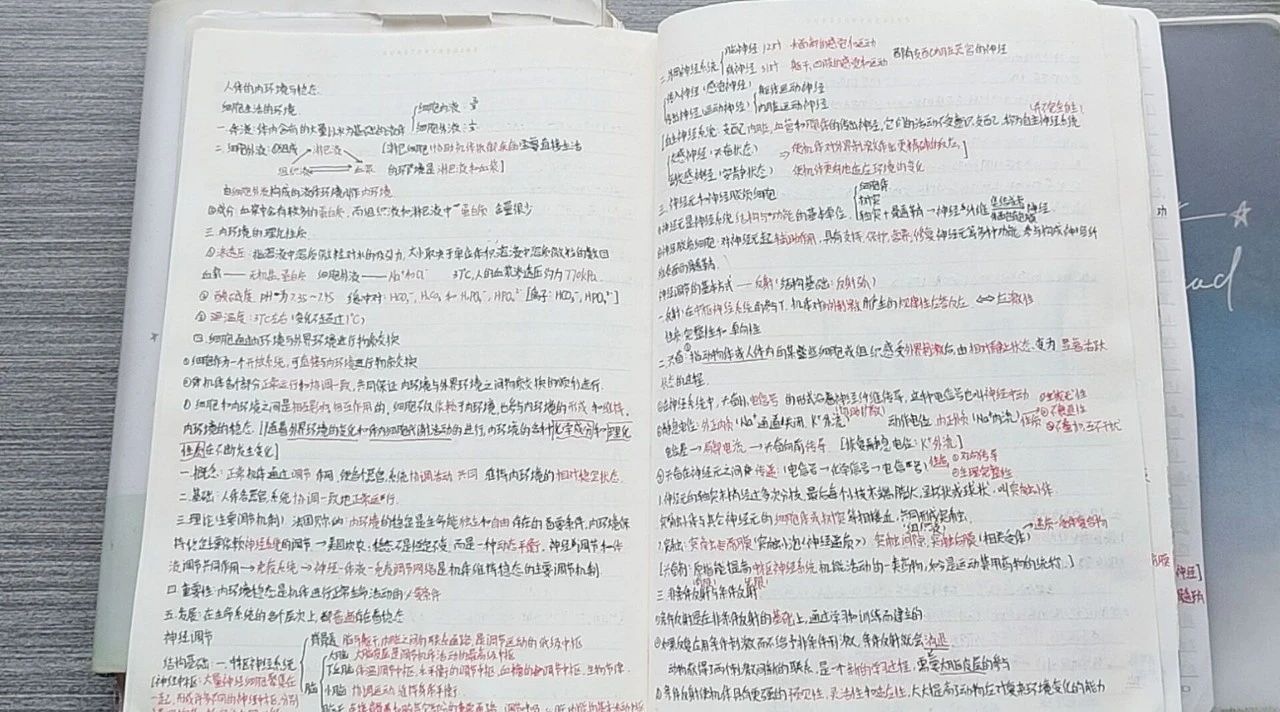 人体的内环境与稳态
细胞生活的环境
细胞内液 2/3
一.体液:体内含有的大量以水为基础的液体
细胞外液 1/3
二.细胞外液:①组成
淋巴液
[淋巴细胞协助机体抵御疾病 直接生活
组织液 血浆 的环境是淋巴液和血浆]
由细胞外液构成的液体环境叫作内环境
②成分 血浆中含有较多的蛋白质,而组织液和淋巴液中蛋白质含量很少
三.内环境的理化性质
①渗透压:指溶液中溶质微粒对水的吸引力,大小取决于单位体积溶液中溶质微粒的数目
血浆——无机盐,蛋白质 细胞外液——Na⁺和Cl⁻ 37℃,人的血浆渗透压约为770kPa
②酸碱度:PH为7.35~7.45 缓冲对:HCO₃⁻,H₂CO₃ 和 H₂PO₄⁻,HPO₄²⁻ [离子:HCO₃⁻,HPO₄²⁻]
③温度:37℃左右(变化不超过1℃)
四.细胞通过内环境与外界环境进行物质交换
①细胞作为一个开放系统,可直接与内环境进行物质交换
②需机体各个部分正常运行和协调一致,共同保证内环境与外界环境之间物质交换的顺利进行.
③细胞和内环境之间是相互影响,相互作用的,细胞不仅依赖于内环境,也参与内环境的形成和维持,
内环境的稳态 [随着外界环境的变化和体内细胞代谢活动的进行,内环境的各种化学成分和理化
性质在不断发生变化]
一.概念:正常机体通过调节作用,使各个器官,系统协调活动 共同维持内环境的相对稳定状态.
二.基础:人体各器官,系统协调一致地正常运行.
三.理论(主要调节机制) 法国贝尔纳:内环境的稳定是生命能独立和自由存在的首要条件,内环境保
持稳定主要依赖神经系统的调节→美国坎农:稳态不是恒定不变,而是一种动态平衡,神经调节和体
液调节共同作用→免疫系统→神经-体液-免疫调节网络是机体维持稳态的主要调节机制
四.重要性:内环境稳态是机体进行正常生命活动的必要条件
五.发展:在生命系统的各个层次上,都普遍存在着稳态
神经调节
脊髓 脑与躯干,内脏之间的联系通路,是调节运动的低级中枢
大脑 大脑皮层是调节机体活动的最高级中枢
结构基础:一.中枢神经系统
下丘脑 体温调节中枢,水平衡的调节中枢,血糖的调节中枢,生物节律.
(神经中枢:大量神经细胞聚集在
脑 小脑 协调运动 维持身体平衡
一起,形成许多不同的神经中枢,分别
脑神经 12对 头面部的感觉和运动
二.外周神经系统 脊神经 31对 躯干,四肢的感觉和运动 都有支配内脏器官的神经
传入神经(感觉神经)
传出神经(运动神经) 躯体运动神经
内脏运动神经
(并不完全自主)
自主神经系统:支配内脏,血管和腺体的传出神经,它们的活动不受意识支配,称为自主神经系统
交感神经(兴奋状态)
⇒使机体对外界刺激作出更精确的反应,
副交感神经(安静状态) 使机体更好地适应环境的变化
三.神经元和神经胶质细胞
细胞体
①神经元是神经系统结构与功能的基本单位. 树突
轴突+髓鞘→神经纤维 神经.
②神经胶质细胞:对神经元起辅助作用,具有支持,保护,营养,修复神经元等多种功能,参与构成神经纤
维表面的髓鞘.
神经调节的基本方式——反射(结构基础:反射弧)
一.反射:在中枢神经系统的参与下,机体对内外刺激所产生的规律性应答反应. ⇔应激性
性质:完整性和单向性
二.兴奋:指动物体或人体内的某些细胞或组织感受外界刺激后由相对静止状态,变为显著活跃
状态的过程.
①在神经系统中,兴奋以电信号的形式沿着神经纤维传导,这种电信号也叫神经冲动
②静息电位:外正内负(Na⁺通道关闭,K⁺外流)(协助扩散) 动作电位:内正外负(Na⁺内流)
电位差→局部电流→兴奋向前传导. [恢复静息电位:K⁺外流]
③兴奋在神经元之间的传递(电信号→化学信号→电信号)
1.神经元的轴突末梢经过多次分枝,最后每个小枝末端膨大,呈杯状或球状,叫突触小体.
突触小体与其它神经元的细胞体或树突等相接近,共同形成突触.
2.突触:突触前膜(突触小泡(神经递质)) 突触间隙 突触后膜(相关受体)
[兴奋剂:原指能提高中枢神经系统机能活动的一类药物,如今是运动禁用药物的统称.]
三.非条件反射与条件反射
①条件反射是在非条件反射的基础上,通过学习和训练而建立的
②如果反复应用条件刺激而不给予非条件刺激,条件反射就会消退
动物获得了两个刺激间新的联系,是一个新的学习过程,需要大脑皮层的参与
③条件反射使机体具有更强的预见性,灵活性和适应性,大大提高了动物应对复杂环境变化的能力